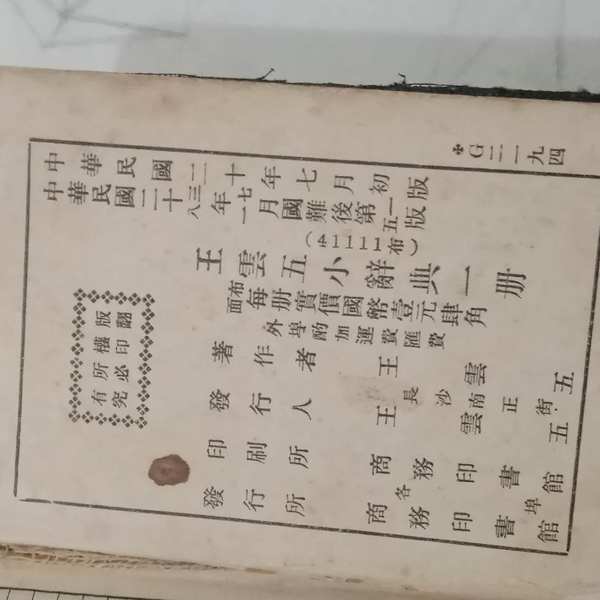 ✤G二二一九四
中華民國二十年七月初版
中華民國二十三八年七一月國難後第一五版
(41111布)
王雲五小辭典一册
布面每册實價國幣壹元肆角
外埠酌加運費匯費
著作者 王雲五
發行人 王雲五
長沙南正街
印刷所 商務印書館
發行所 商務印書館
各埠
版權所有
翻印必究